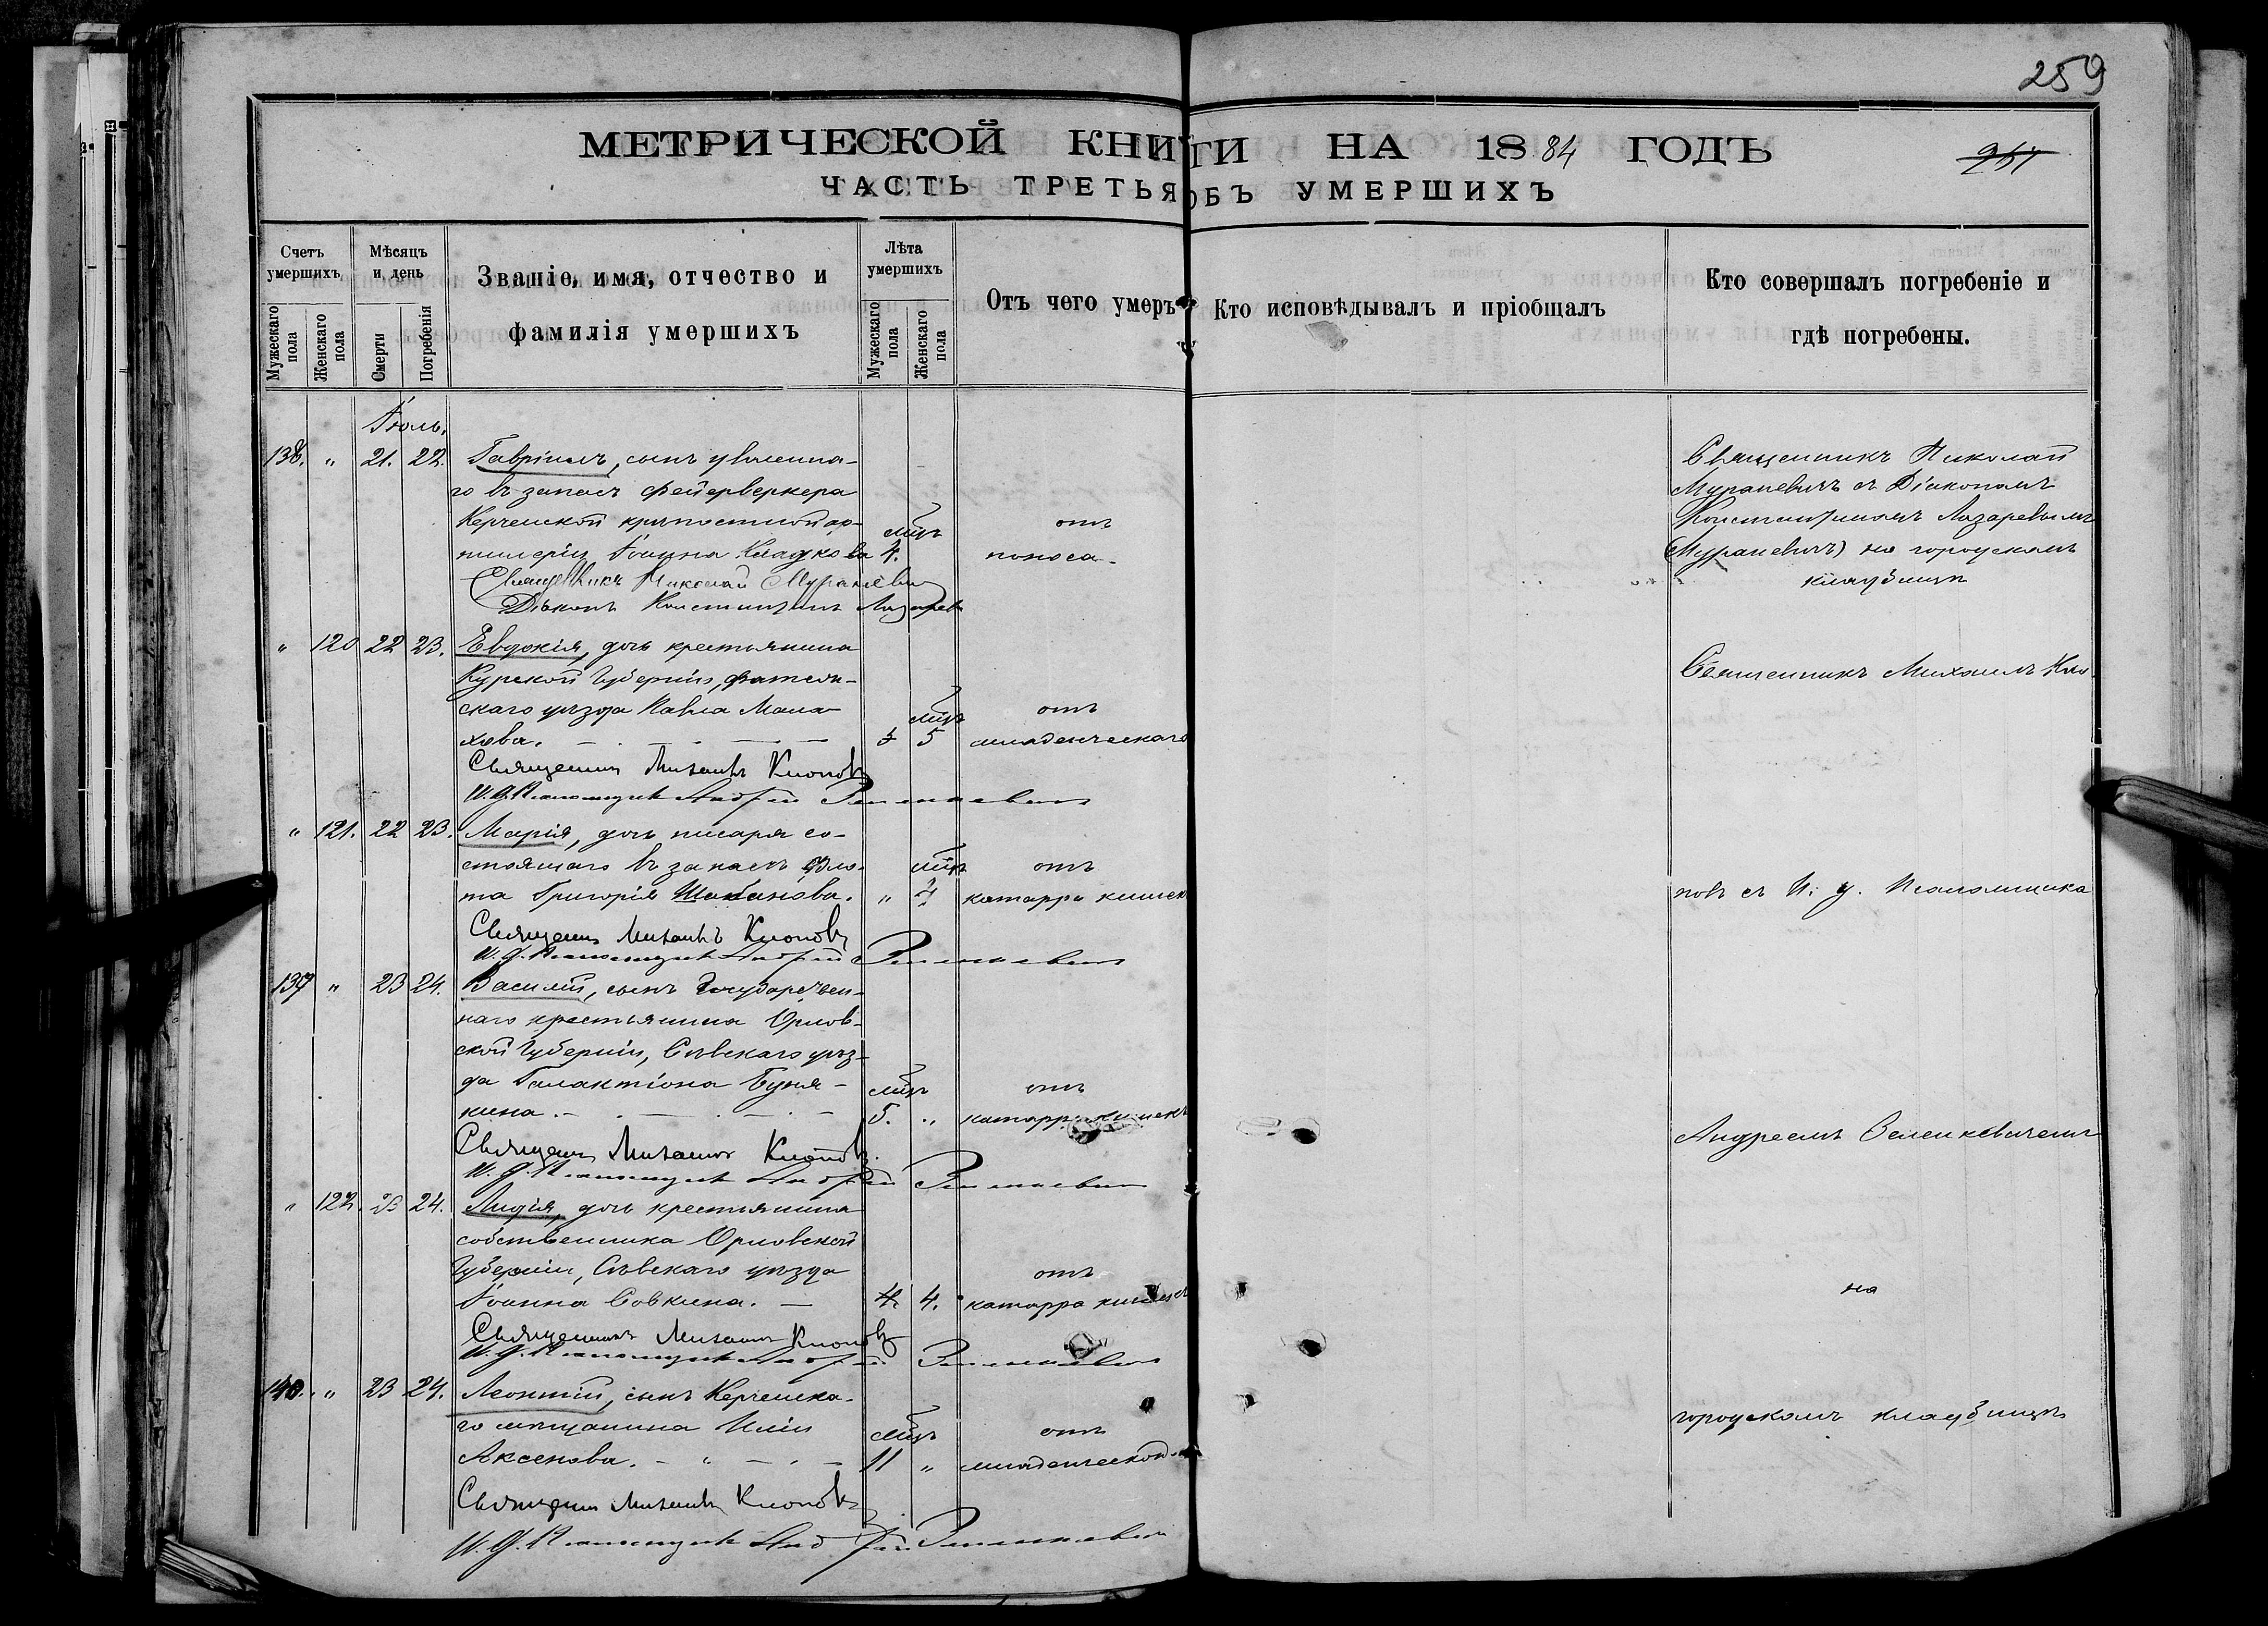 259
МЕТРИЧЕСКОЙ КНИГИ НА 1884 ГОДЪ
ЧАСТЬ ТРЕТЬЯ ОБЪ УМЕРШИХЪ
Счетъ умершихъ
Мужескаго пола
Женскаго пола
Мѣсяцъ и день
Смерти
Погребенія
Званіе, имя, отчество и фамилія умершихъ
Лѣта умершихъ
Мужескаго пола
Женскаго пола
Отъ чего умеръ
Кто исповѣдывалъ и пріобщалъ
Кто совершалъ погребеніе и гдѣ погребены.
Іюль.
138. " 21. 22. Гавріилъ, сынъ уволенна-
го въ запасъ фейерверкера
Керченской крѣпостной ар- мцъ отъ
тилеріи Іоанна Кладкова 4. поноса.
Священникъ Николай Мураневичъ
Діаконъ Константинъ Лазаревъ
Священникъ Николай
Мураневичъ съ Діакономъ
Константиномъ Лазаревымъ
(Мураневичъ) на городскомъ
кладбищѣ
" 120 22 23. Евдокія, дочь крестьянина
Курской Губерніи, Фатеж-
скаго уѣзда Павла Мала- мцъ отъ
хова. 5 младенческаго
Священникъ Михаилъ Клоповъ
И. д. Псаломщика Андрей Зеленкевичъ
Священникъ Михаилъ Кло-
" 121. 22 23. Марія, дочь писаря со-
стоящаго въ запасѣ Фло- мцъ отъ
та Григорія Шабанова. " 7 катарра кишекъ
Священникъ Михаилъ Клоповъ
И. д. Псаломщика Андрей Зеленкевичъ
повъ съ И. д. Псаломщика
139 " 23 24. Василій, сынъ Государствен-
наго крестьянина Орлов-
ской Губерніи, Сѣвскаго уѣз-
да Галактіона Буня- мцъ отъ
кина. 5. " катарра кишекъ
Священникъ Михаилъ Клоповъ.
И. д. Псаломщика Андрей Зеленкевичъ
Андреемъ Зеленкевичемъ
" 122. 23 24. Лидія, дочь крестьянина
собственника Орловской
Губерніи, Сѣвскаго уѣзда отъ
Іоанна Совкина. 4. катарра кишекъ
Священникъ Михаилъ Клоповъ
И. д. Псаломщика Андрей Зеленкевичъ
на
140. " 23 24. Леонтій, сынъ Керченска-
го мѣщанина Иліи мцъ отъ
Аксенова. 11 " младенческой
Священникъ Михаилъ Клоповъ
И. д. Псаломщика Андрей Зеленкевичъ
городскомъ кладбищѣ